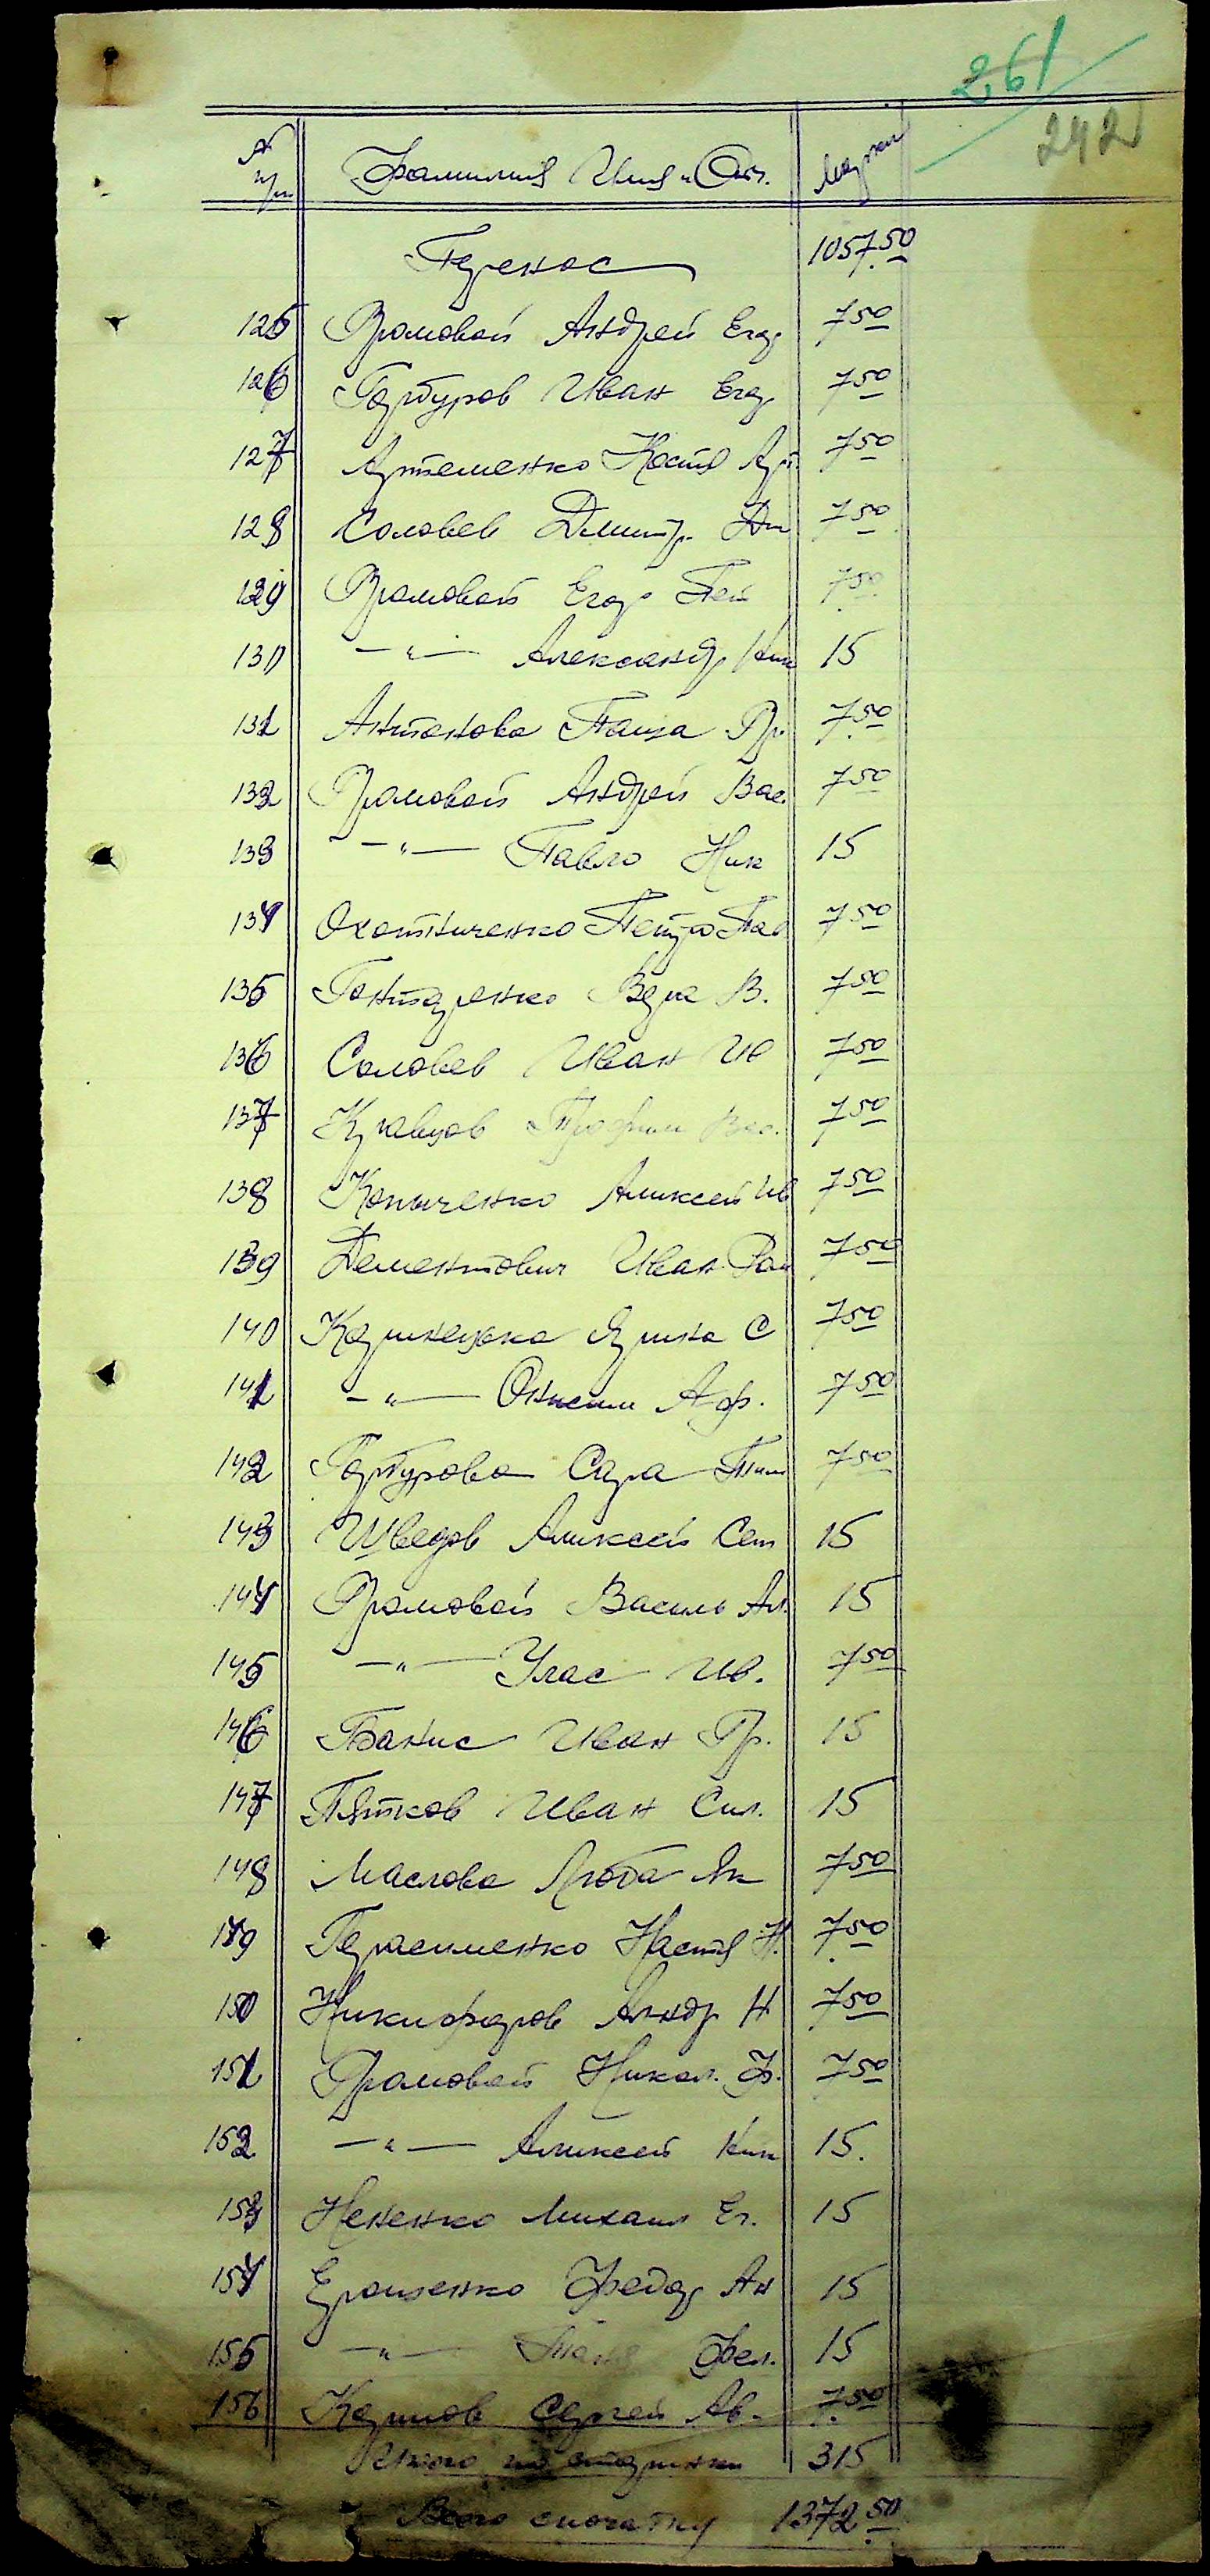 261
242
№ п/п Фамилия Имя и От. Марки
Перенос 1057.50
125 Яромовой Андрей Егор 7 50
126 Горбуров Иван Егор 7 50
127 Артеменко Костя Арт. 7 50
128 Соловев Дмитр. Дм 7 50
129 Яромовой Егор Пет 7 50
130 —"— Александр Ник 15
131 Антонова Паша Гр. 7 50
132 Громовой Андрей Вас. 7 50
133 —"— Павло Ник 15
134 Охотниченко Петро Пав 7 50
135 Гонтаренко Вера В. 7 50
136 Соловев Иван Ив 7 50
137 Кравцов Трофим Вас. 7 50
138 Копыченко Аликсей Ив 7 50
139 Дементович Иван Ром 7 50
140 Коринецька Ярина С 7 50
141 —"— Онисим Аф. 7 50
142 Горбурова Сара Тим 7 50
143 Шведов Аликсей Сем 15
144 Громовой Василь Ал. 15
145 —"— Улас Ив. 7 50
146 Банис Иван Гр. 15
147 Пятков Иван Сил. 15
148 Маслова Люба Як 7 50
149 Герасименко Настя Н. 7 50
150 Никифоров Андр Н 7 50
151 Громовой Никол. Ф. 7 50
152 —"— Аликсей Ник 15.
153 Нененко Михаил Ег. 15
154 Ерошенко Федор Ан 15
155 —"— Фед. 15
156 Каримов Сергей Ав. 7.50
Итого по сторинки 315
Всего спочатку 1372 50